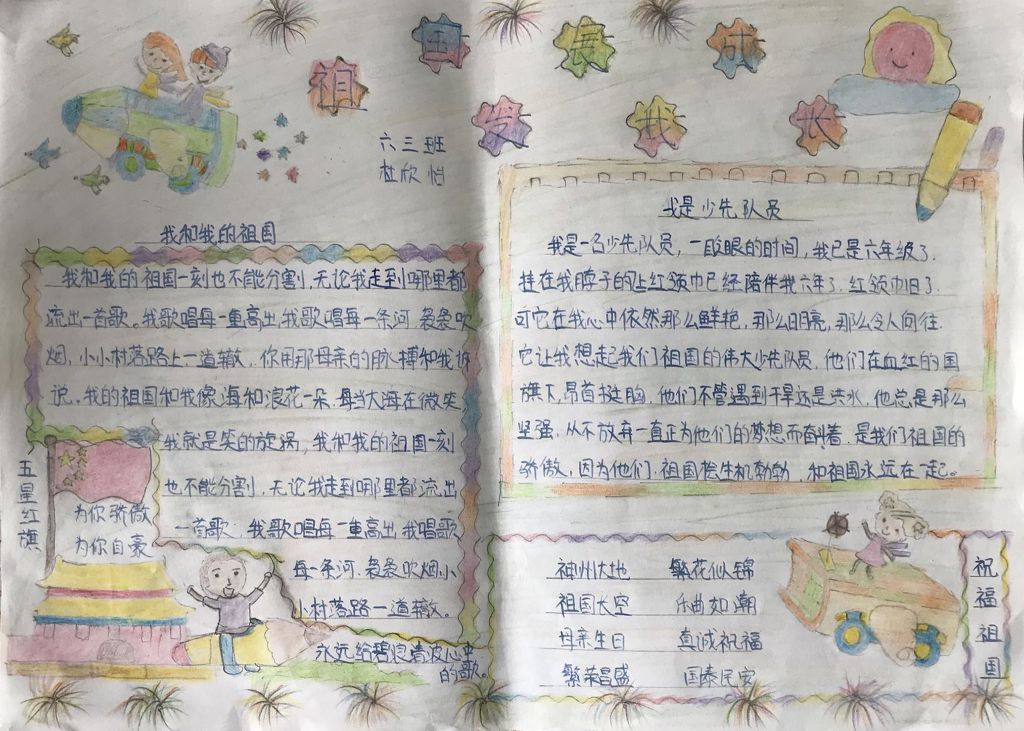 祖国发展我成长
六三班
杜欣怡
我和我的祖国
我和我的祖国一刻也不能分割,无论我走到哪里都
流出一首歌。我歌唱每一重高出,我歌唱每一条河,袅袅吹
烟,小小村落路上一道辙,你用那母亲的脉搏和我诉
说。我的祖国和我像海和浪花一朵.母当大海在微笑
我就是笑的旋涡,我和我的祖国一刻
也不能分割,无论我走到哪里都流出
一首歌,我歌唱每一重高出,我唱歌
每一条河.袅袅吹烟,小
小村落路一道辙.
永远给碧浪清波心中
的歌。
五星红旗
为你骄傲
为你自豪
我是少先队员
我是一名少先队员,一眨眼的时间,我已是六年级了.
挂在我脖子的上红领巾已经陪伴我六年了.红领巾旧了.
可它在我心中依然那么鲜艳,那么明亮,那么令人向往.
它让我想起我们祖国的伟大少先队员,他们在血红的国
旗下,昂首挺胸,他们不管遇到干旱还是洪水,他总是那么
坚强,从不放弃一直正为他们的梦想而奋斗着.是我们祖国的
骄傲,因为他们.祖国生机勃勃,和祖国永远在一起。
神州大地 繁花似锦
祖国长空 乐曲如潮
母亲生日 真诚祝福
繁荣昌盛 国泰民安
祝福祖国